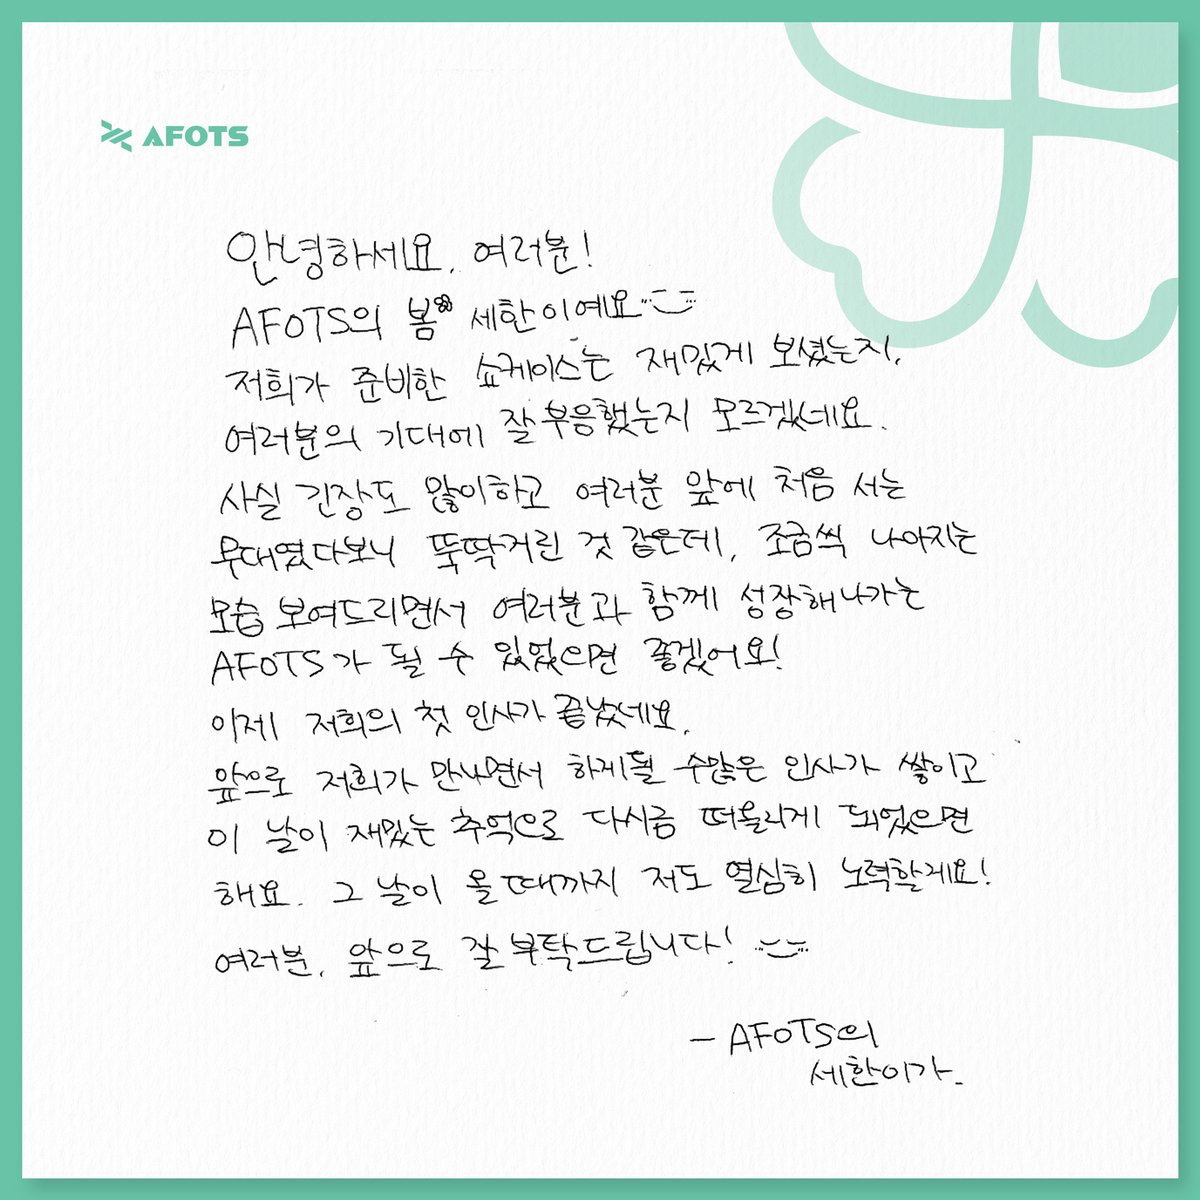 AFOTS
안녕하세요, 여러분!
AFOTS의 봄 세한이예요
저희가 준비한 쇼케이스는 재밌게 보셨는지,
여러분의 기대에 잘 부응했는지 모르겠네요.
사실 긴장도 많이하고 여러분 앞에 처음 서는
무대였다보니 뚝딱거린 것 같은데, 조금씩 나아지는
모습 보여드리면서 여러분과 함께 성장해나가는
AFOTS가 될 수 있었으면 좋겠어요!
이제 저희의 첫 인사가 끝났네요.
앞으로 저희가 만나면서 하게될 수많은 인사가 쌓이고
이 날이 재밌는 추억으로 다시금 떠올리게 되었으면
해요. 그 날이 올 때까지 저도 열심히 노력할게요!
여러분, 앞으로 잘 부탁드립니다!
- AFOTS의
세한이가.